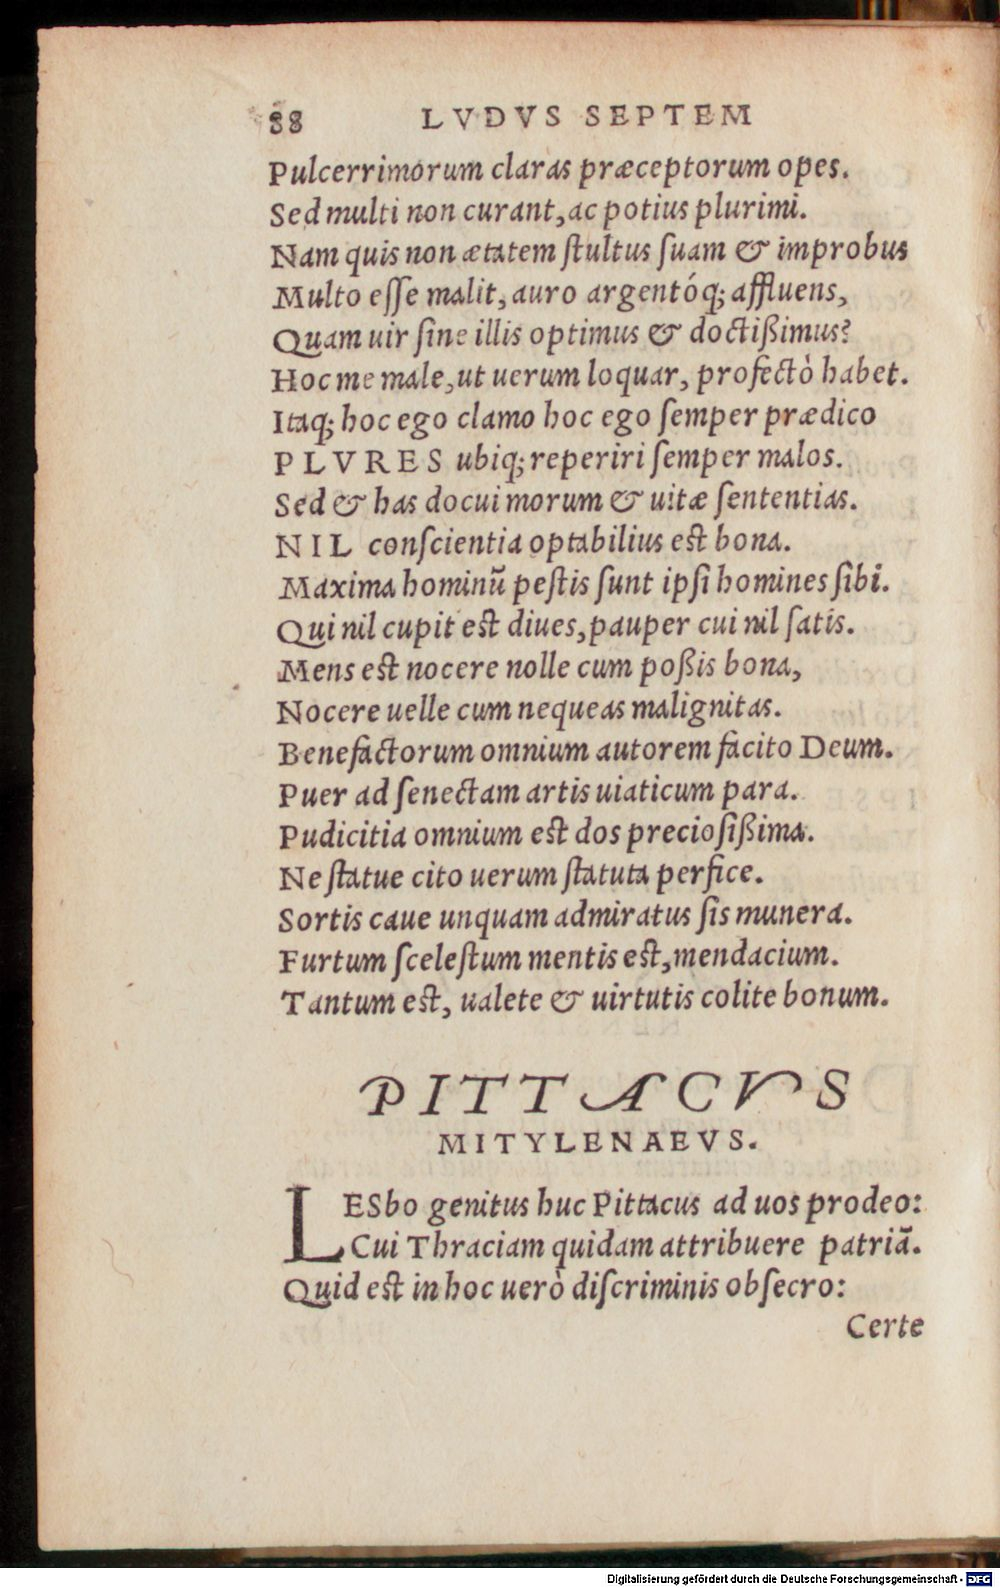 88 LVDVS SEPTEM
Pulcerrimorum claras præceptorum opes.
Sed multi non curant, ac potius plurimi.
Nam quis non ætatem ſtultus ſuam & improbus
Multo eſſe malit, auro argentóq; affluens,
Quam uir ſine illis optimus & doctißimus?
Hoc me male, ut uerum loquar, profectò habet.
Itaq; hoc ego clamo hoc ego ſemper prædico
PLVRES ubiq; reperiri ſemper malos.
Sed & has docui morum & uitæ ſententias.
NIL conſcientia optabilius est bona.
Maxima hominũ peſtis ſunt ipſi homines ſibi.
Qui nil cupit est diues, pauper cui nil ſatis.
Mens est nocere nolle cum poßis bona,
Nocere uelle cum nequeas malignitas.
Benefactorum omnium autorem facito Deum.
Puer ad ſenectam artis uiaticum para.
Pudicitia omnium est dos precioſißima.
Ne ſtatue cito uerum ſtatuta perfice.
Sortis caue unquam admiratus ſis munera.
Furtum ſceleſtum mentis est, mendacium.
Tantum est, ualete & uirtutis colite bonum.
PITTACVS
MITYLENAEVS.
LESbo genitus huc Pittacus ad uos prodeo:
Cui Thraciam quidam attribuere patriã.
Quid est in hoc uerò diſcriminis obſecro:
Certe
Digitalisierung gefördert durch die Deutsche Forschungsgemeinschaft - DFG